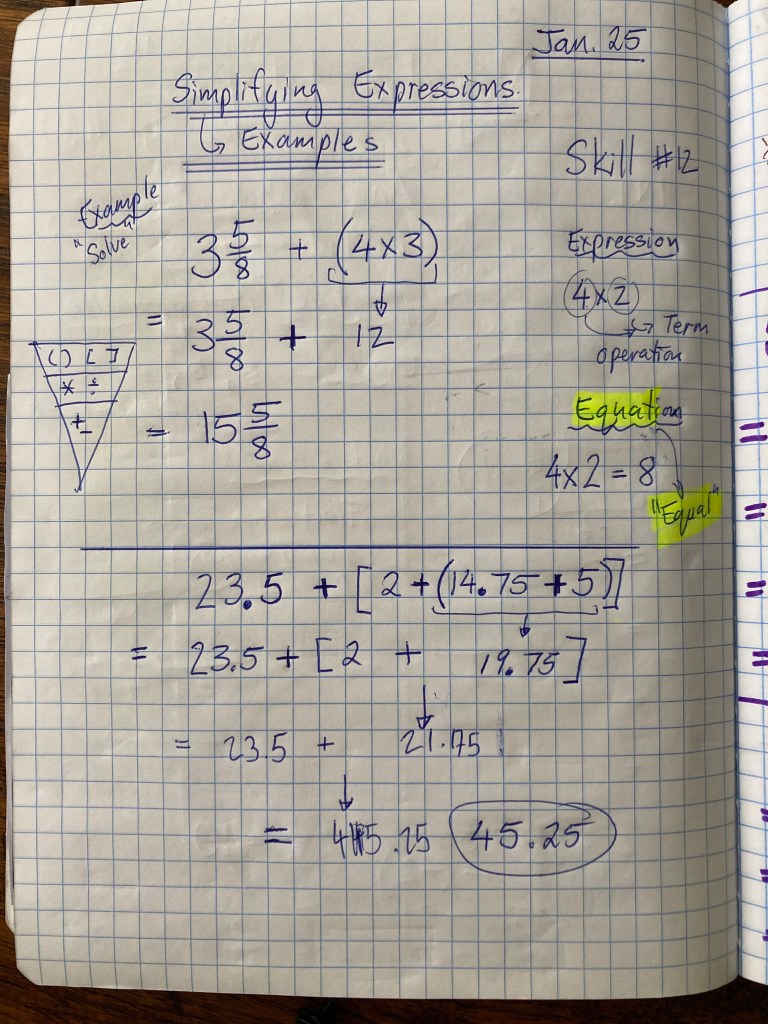 Jan. 25
Simplifying Expressions.
↳ Examples
Skill #12
Example
"Solve"
3 5/8 + (4×3)
= 3 5/8 + 12
= 15 5/8
( ) [ ]
× ÷
+ -
Expression
4×2
→ Term
operation
Equation
4×2 = 8
"Equal"
23.5 + [2 + (14.75 + 5)]
= 23.5 + [2 + 19.75]
= 23.5 + 21.75
= 45.25 45.25